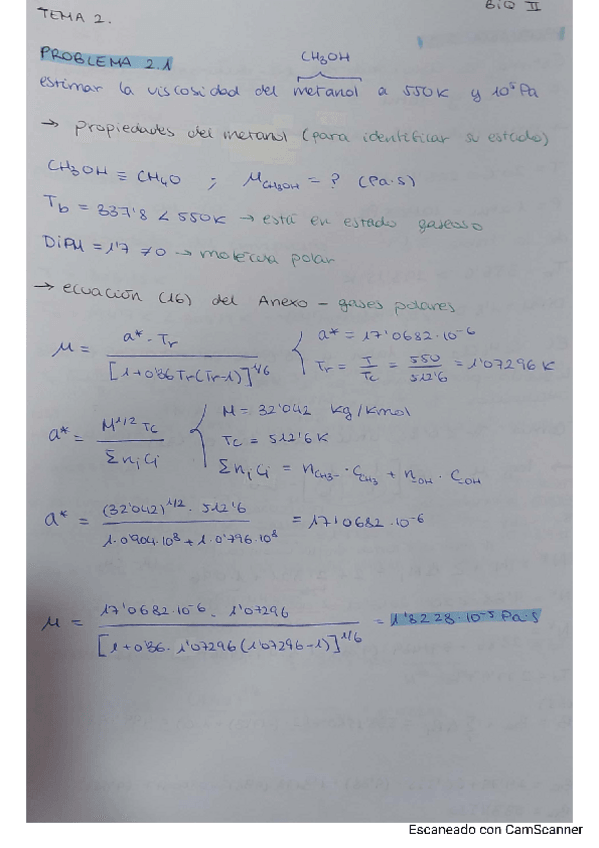 TEMA 2.
BiQ II
PROBLEMA 2.1
CH3OH
estimar la viscosidad del metanol a 550K y 10⁵Pa
→ propiedades del metanol (para identificar su estado)
CH3OH ≡ CH4O ; μCH3OH = ? (Pa·s)
Tb = 337'8 < 550K → está en estado gaseoso
DiPM = 1'7 ≠ 0 → molécula polar
→ ecuación (16) del Anexo - gases polares
μ = a* · Tr / [1+0'36Tr(Tr-1)]^1/6
a* = 17'0682·10⁻⁶
Tr = T/Tc = 550/512'6 = 1'07296 K
a* = M^1/2 Tc / Σni Ci
M = 32'042 kg/Kmol
Tc = 512'6K
Σni Ci = nCH3- · CCH3 + nOH · COH
a* = (32'042)^1/2 · 512'6 / 1·0'904·10⁸ + 1·0'796·10⁸ = 17'0682·10⁻⁶
μ = 17'0682·10⁻⁶ · 1'07296 / [1+0'36·1'07296(1'07296-1)]^1/6 = 1'8228·10⁻⁵ Pa·s
Escaneado con CamScanner